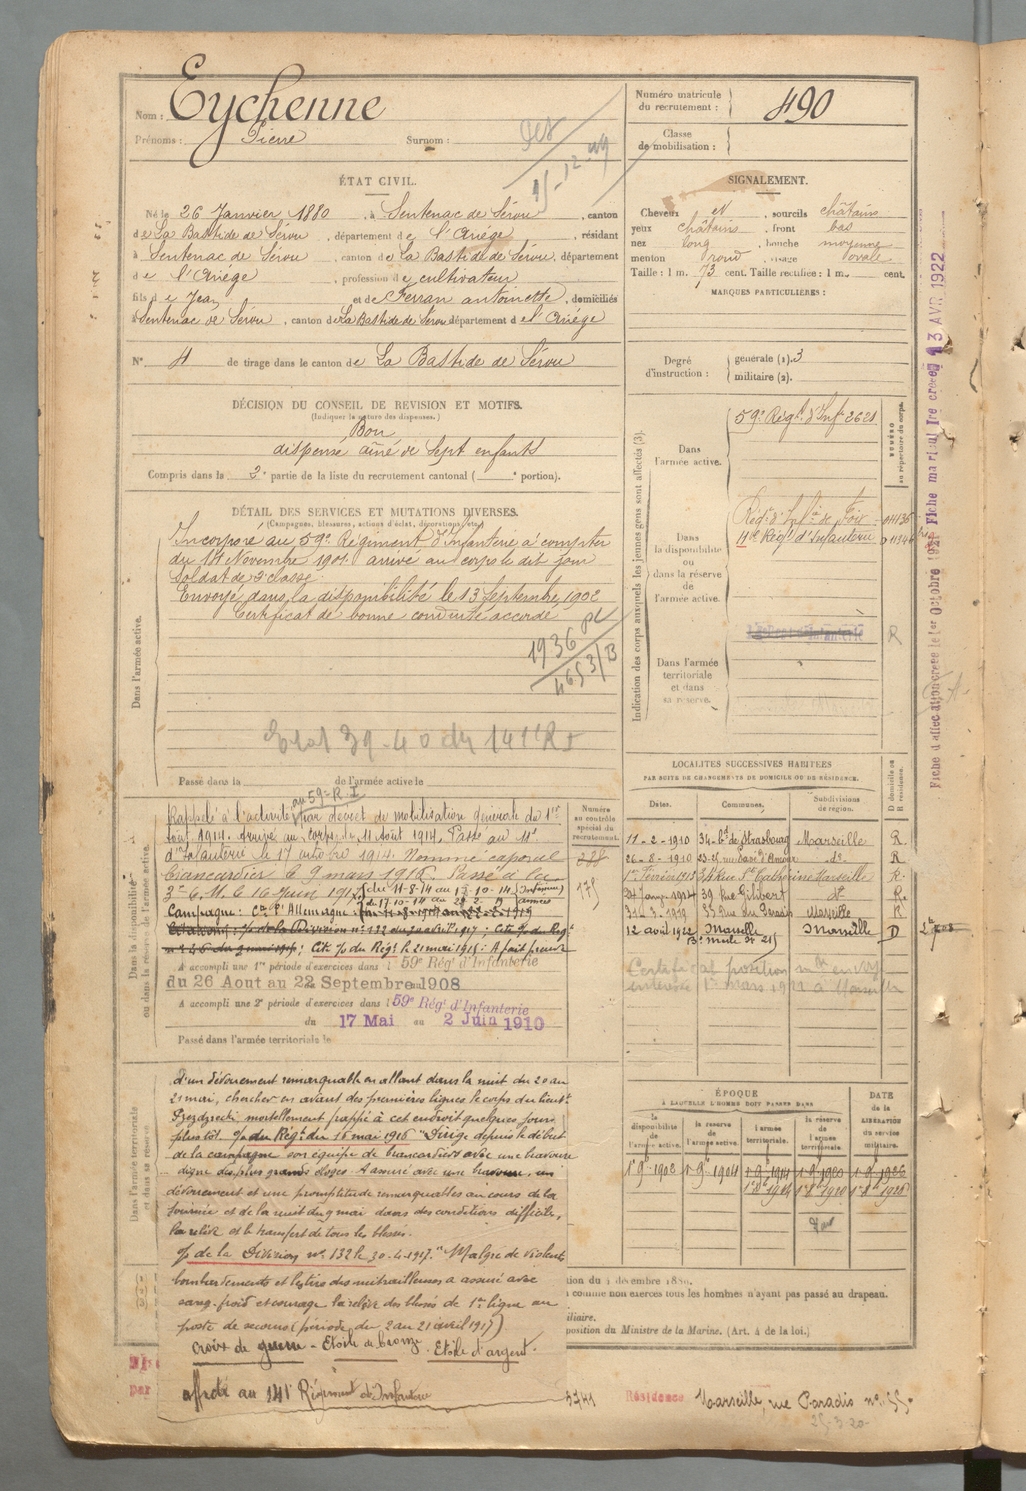 Nom : Eychenne
Prénoms : Pierre Surnom :
Numéro matricule
du recrutement : 490
Classe
de mobilisation :
ÉTAT CIVIL.
Né le 26 Janvier 1880, à Sentenac de Sérou, canton
de La Bastide de Sérou, département de l'Ariège, résidant
à Sentenac de Sérou, canton de La Bastide de Sérou, département
de l'Ariège, profession de cultivateur
fils de Jean et de Ferran antoinette, domiciliés
à Sentenac de Sérou, canton de La Bastide de Sérou département de l'Ariège
N° 4 de tirage dans le canton de La Bastide de Sérou
SIGNALEMENT.
Cheveux et, sourcils châtains
yeux châtains, front bas
nez long, bouche moyenne
menton rond, visage ovale
Taille : 1 m. 73 cent. Taille rectifiée : 1 m. cent.
MARQUES PARTICULIÈRES :
Degré
d'instruction :
générale (1). 3
militaire (2).
DÉCISION DU CONSEIL DE REVISION ET MOTIFS.
(Indiquer la nature des dispenses.)
Bon
dispensé aîné de Sept enfants
Compris dans la 2e partie de la liste du recrutement cantonal ( e portion).
DÉTAIL DES SERVICES ET MUTATIONS DIVERSES.
(Campagnes, blessures, actions d'éclat, décorations, etc.)
Dans l'armée active.
Incorporé au 59e Régiment d'Infanterie à compter
du 14 Novembre 1901. arrivé au corps le dit jour
Soldat de 2e classe.
Envoyé dans la disponibilité le 13 Septembre 1902
Certificat de bonne conduite accordé
1936
4653/B
Etat 39-40 du 141e RI
Passé dans la de l'armée active le
Indication des corps auxquels les jeunes gens sont affectés (3).
Dans
l'armée active.
59e Régt d'Inf 2621
NUMÉRO
au répertoire du corps.
Dans
la disponibilité
ou
dans la réserve
de
l'armée active.
Régt d'Infie de Foix
11e Régt d'Infanterie
Dans l'armée
territoriale
et dans
sa réserve.
R
Fiche matricule créée 13 AVR 1922
LOCALITÉS SUCCESSIVES HABITÉES
PAR SUITE DE CHANGEMENTS DE DOMICILE OU DE RÉSIDENCE.
Dates. Communes. Subdivisions
de région.
D domicile ou
R résidence.
11-2-1910 34 Bd de Strasbourg Marseille R.
26-8-1910 do R
1er Février 1913 Rue Ste Catherine Marseille R.
24 Janv. 1914 39 Rue Glibert do R
31-3-1919 Marseille R
12 août 1922 Marseille Marseille D
Dans la disponibilité
ou dans la réserve de l'armée active.
Numéro
au contrôle
spécial du
recrutement.
288
au 59e R.I
Rappelé à l'activité par décret de mobilisation générale du 1er
août 1914. Arrivé au corps le 11 Août 1914. Passé au 11e
d'Infanterie le 17 octobre 1914. Nommé caporal
brancardier le 9 mars 1916. Passé à la
Campagne : Cre l'Allemagne
Cité o/ du Régt le 21 mai 1915 : A fait preuve
A accompli une 1re période d'exercices dans l 59e Rég d'Infanterie
du 26 Aout au 22 Septembre 1908
A accompli une 2e période d'exercices dans l 59e Régt d'Infanterie
du 17 Mai au 2 Juin 1910
Passé dans l'armée territoriale le
Dans l'armée territoriale
et dans sa réserve
d'un dévouement remarquable en allant dans la nuit du 20 au
21 mai, chercher en avant des premières lignes le corps du lieutt
mortellement frappé à cet endroit quelques jours
plus tôt. o/ du Régt du 16 mai 1916 "Dirige depuis le début
de la campagne son équipe de brancardiers avec une bravoure
digne des plus grands éloges. A assuré avec une bravoure, un
dévouement et une promptitude remarquables au cours de la
journée et de la nuit du 9 mai dans des conditions difficiles,
la relève et le transfert de tous les blessés.
o/ de la Division no 132 le 30-4-1917. "Malgré de violents
bombardements et les tirs des mitrailleuses a assuré avec
sang-froid et courage la relève des blessés de 1re ligne au
poste de secours (période du 2 au 21 avril 1917)
Croix de guerre - Etoile de bronze. Etoile d'argent.
affecté au 141e Régiment d'Infanterie
ÉPOQUE
À LAQUELLE L'HOMME DOIT PASSER DANS
la
disponibilité
de
l'armée active.
la réserve
de
l'armée active.
l'armée
territoriale.
la réserve
de
l'armée
territoriale.
DATE
de la
LIBÉRATION
du service
militaire.
1er 9bre 1902 1er 9bre 1904 1er 9bre 1914 1er 9bre 1920 1er 9bre 1926
comme non exercés tous les hommes n'ayant pas passé au drapeau.
position du Ministre de la Marine. (Art. 4 de la loi.)
Résidence Marseille, rue Paradis no 55
25-3-20